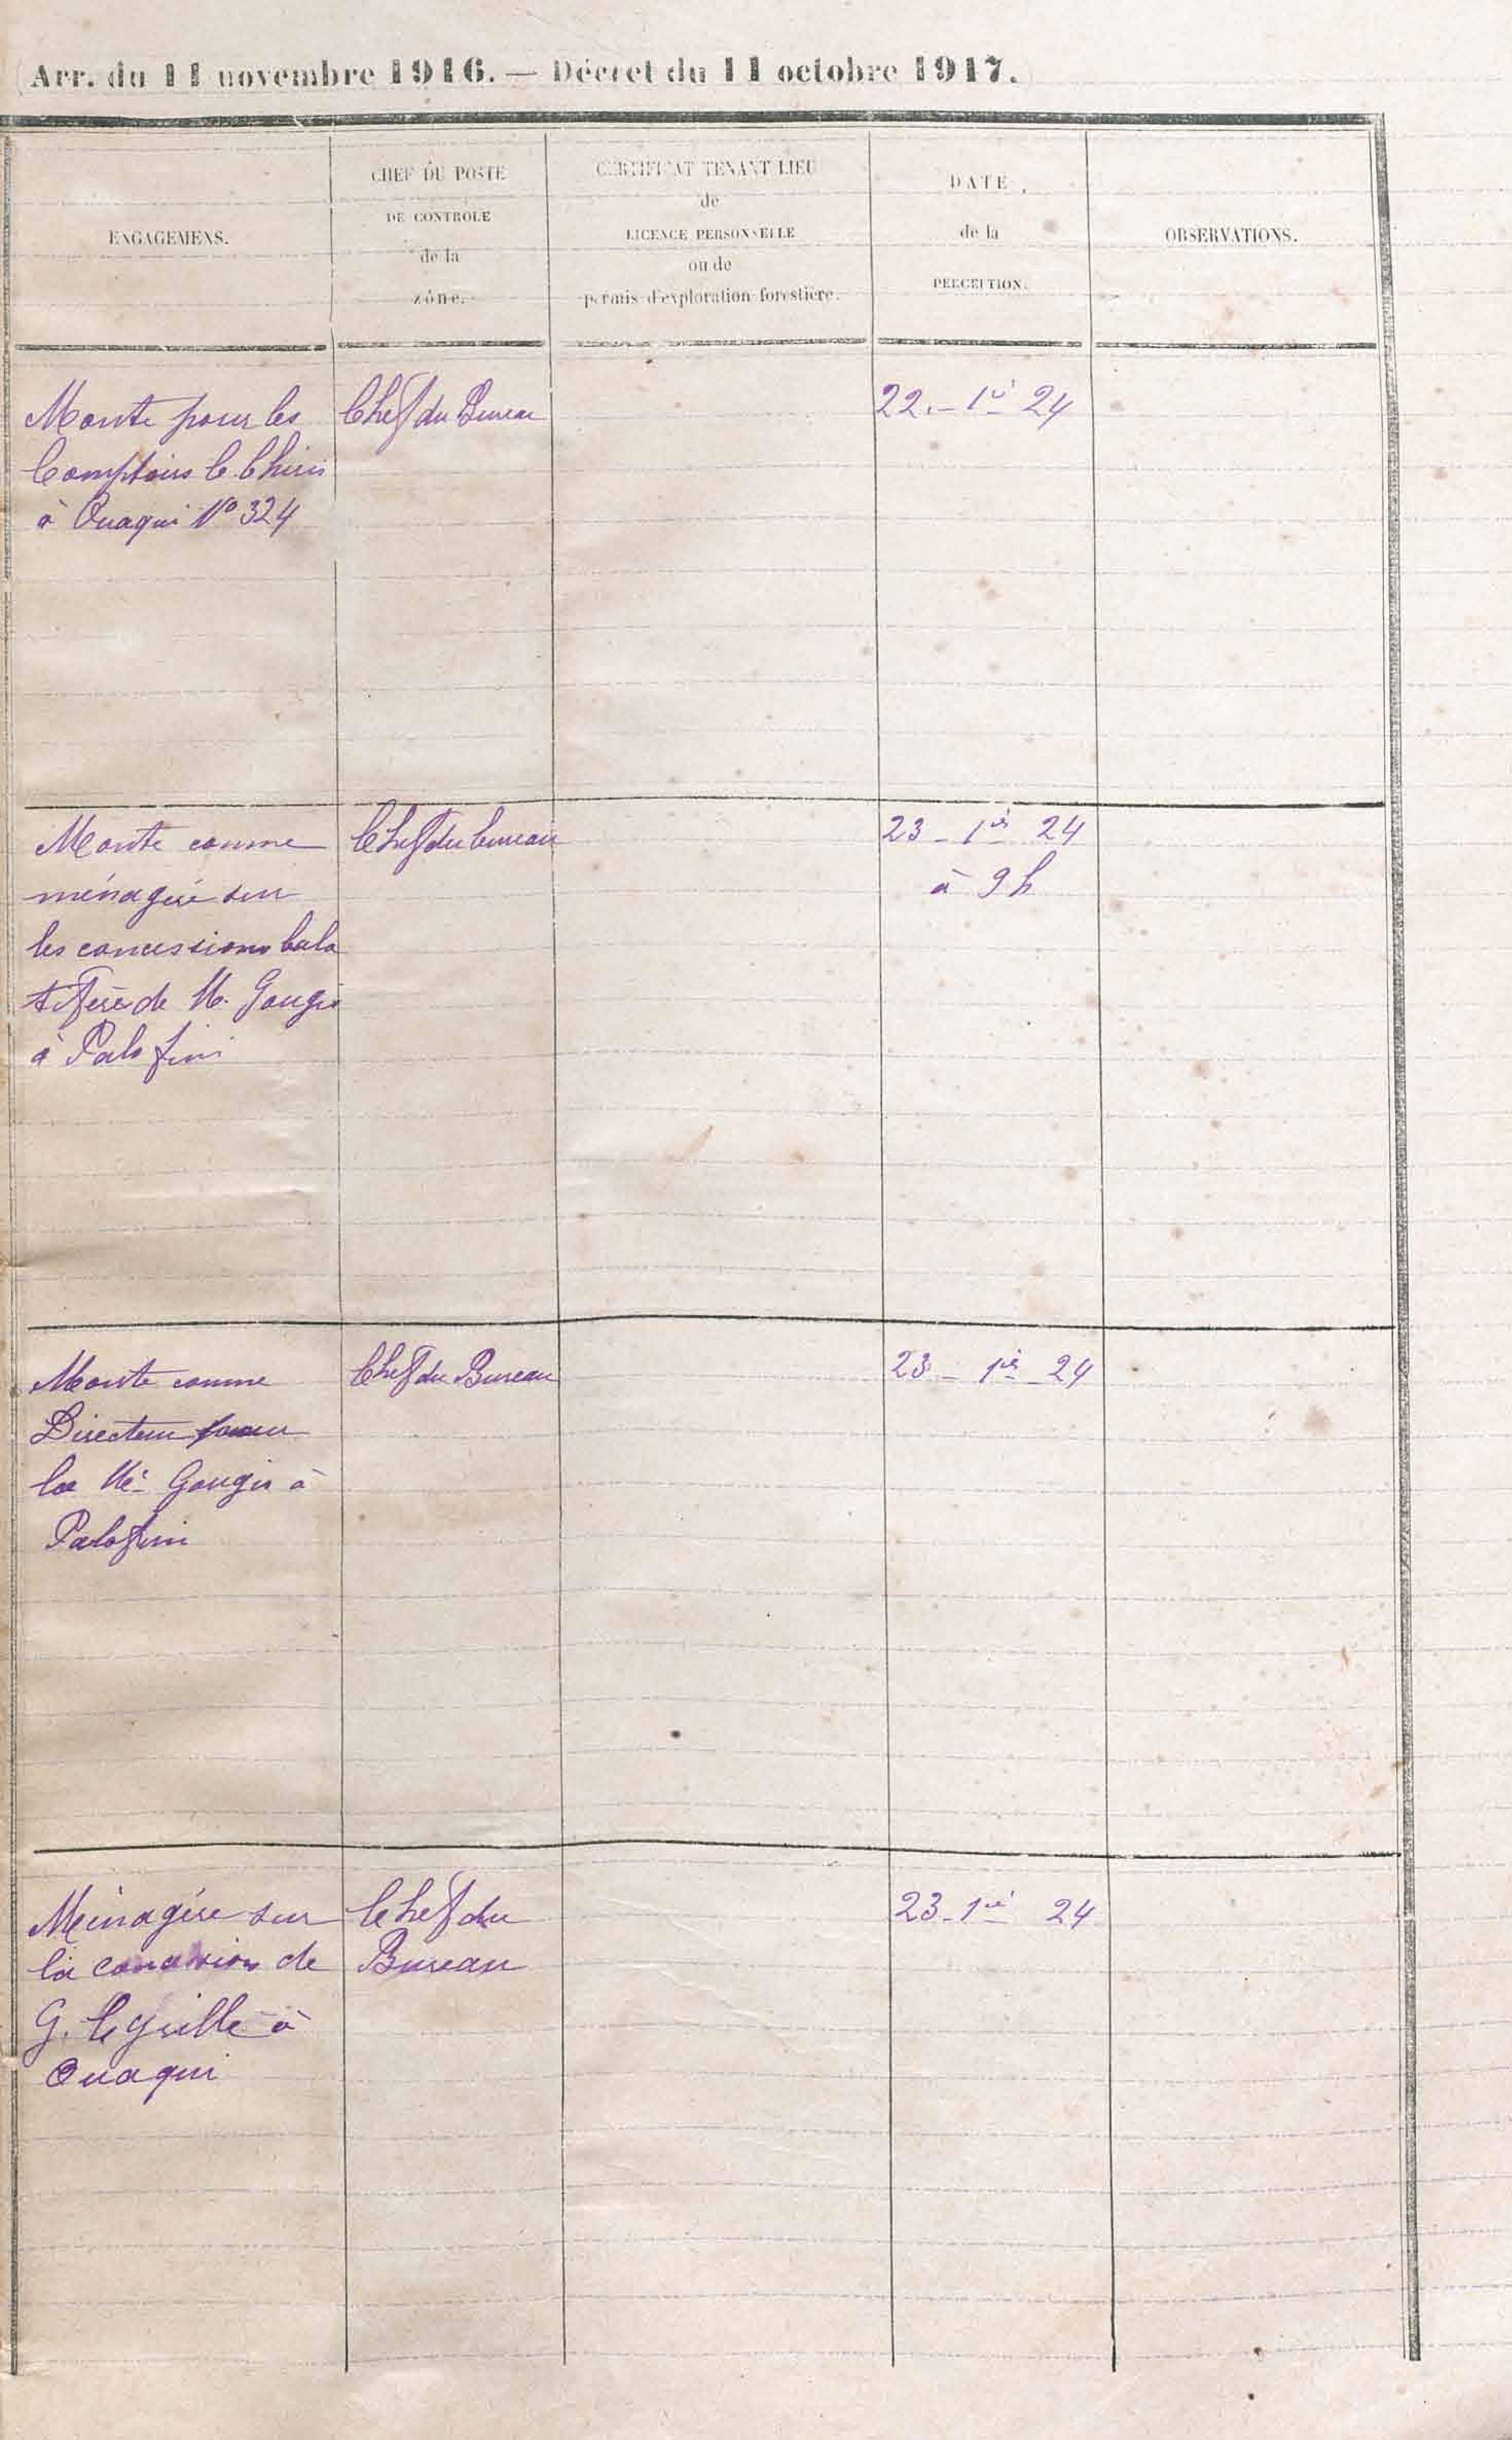 Arr. du 11 novembre 1916. — Décret du 11 octobre 1917.
ENGAGEMENS.
CHEF DU POSTE
DE CONTROLE
de la
zône.
CERTIFICAT TENANT LIEU
de
LICENCE PERSONNELLE
ou de
permis d'exploration forestière.
DATE
de la
PERCEPTION.
OBSERVATIONS.
Monte pour les
Comptoirs C. Chiris
à Ouaqui No 324
Chef du Bureau
22. - 1er 24
Monte comme
ménagère sur
les concessions bala
tifère de M. Gougis
à Palofini
Chef du bureau
23 - 1er 24
à 9 h
Monte comme
Directeur pour
la Mé Gougis à
Palofini
Chef du Bureau
23 - 1er 24
Ménagère sur
la concession de
G. à
Ouaqui
Chef du
Bureau
23 - 1er 24